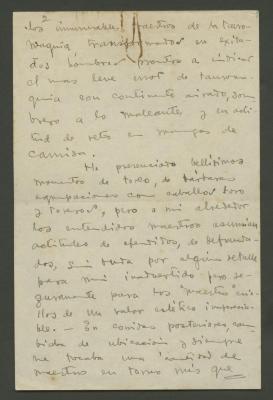 2
los innumerables maestros de la tauro-
maquia, transformados en exita-
dos hombres prontos a indicar
el mas leve error de tauroma-
quia con continente airado, som-
brero a lo maleante y en acti-
tud de reto en mangas de
camisa.
He presenciado bellísimos
momentos de toreo, de
agrupaciones con caballos toro
y toreros, pero a mi alrededor
los entendidos maestros asumían
actitudes de ofendidos, de defrauda-
dos, sin duda por algun detalle
para mi inadvertido pero se-
guramente para los "maestros" cini-
llos de un valor estético imperdo-
ble. — En corridas posteriores, cam-
biaba de ubicación y siempre
me tocaba una cantidad de
maestros en torno mio que